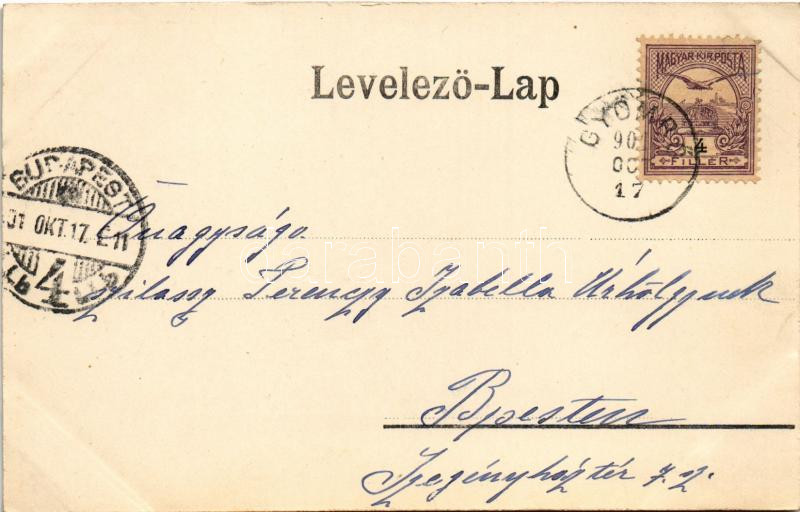 Levelező-Lap
MAGYAR·KIR·POSTA
4
FILLÉR
GYÖMRŐ
90
OC
17
BUDAPEST
01 OKT.17.
4
Őnagysága
Szilassy Ferenczy Izabella Úrhölgynek
Bpesten
Szegényház tér 7. 2.
darabanth